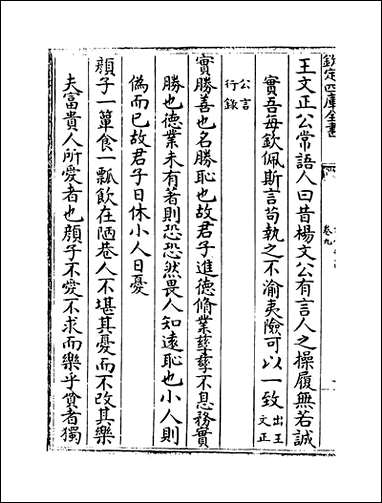 欽定四庫全書
卷九
王文正公常語人曰昔楊文公有言人之操履無若誠
實吾每欽佩斯言苟執之不渝夷險可以一致出王文正
公言行錄
實勝善也名勝恥也故君子進德脩業孳孳不息務實
勝也德業未有著則恐恐然畏人知遠恥也小人則
偽而已故君子日休小人日憂
顏子一簞食一瓢飲在陋巷人不堪其憂而不改其樂
夫富貴人所愛者也顏子不愛不求而樂乎貧者獨